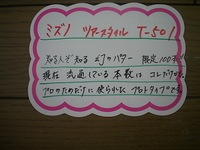 ミズノ ツアースタイル T-501
知る人ぞ知る 幻のパター 限定100本!
現在 流通している本数は コレだけ
プロのためだけに 使られた プロトタイプです